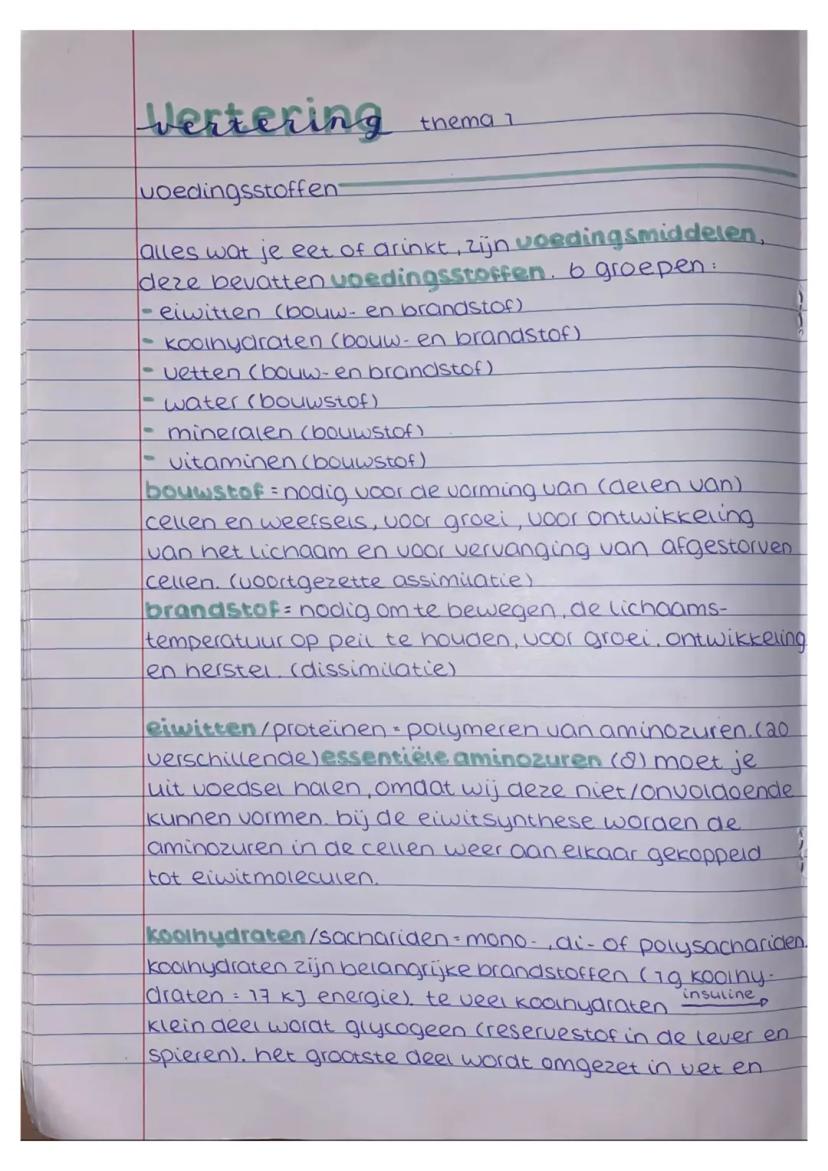 Vertering
vertering thema 1
voedingsstoffen
alles wat je eet of drinkt, zijn voedingsmiddelen,
deze bevatten voedingsstoffen. 6 groepen:
- eiwitten (bouw- en brandstof)
- koolhydraten (bouw- en brandstof)
- vetten (bouw- en brandstof)
- water (bouwstof)
- mineralen (bouwstof)
- vitaminen (bouwstof)
bouwstof = nodig voor de vorming van (delen van)
cellen en weefsels, voor groei, voor ontwikkeling
van het lichaam en voor vervanging van afgestorven
cellen. (voortgezette assimilatie)
brandstof = nodig om te bewegen, de lichaams-
temperatuur op peil te houden, voor groei, ontwikkeling
en herstel. (dissimilatie)
eiwitten/proteïnen = polymeren van aminozuren. (20
verschillende) essentiële aminozuren (8) moet je
uit voedsel halen, omdat wij deze niet/onvoldoende
kunnen vormen. bij de eiwitsynthese worden de
aminozuren in de cellen weer aan elkaar gekoppeld
tot eiwitmoleculen.
koolhydraten/sachariden = mono-, di- of polysachariden.
koolhydraten zijn belangrijke brandstoffen (1g koolhy-
draten = 17 kJ energie). te veel koolhydraten insuline→
klein deel wordt glycogeen (reservestof in de lever en
spieren). het grootste deel wordt omgezet in vet en